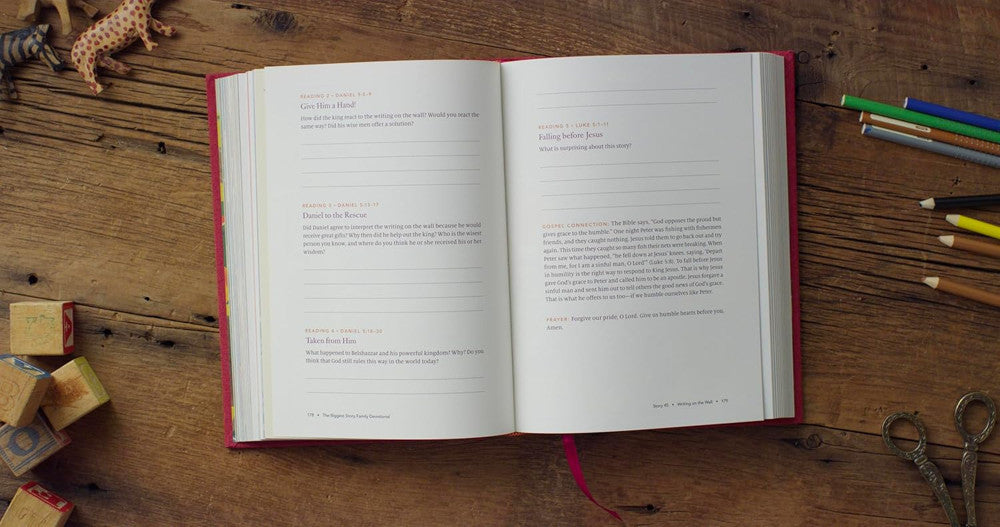 READING 2 • DANIEL 5:5–9
Give Him a Hand!
How did the king react to the writing on the wall? Would you react the
same way? Did his wise men offer a solution?
READING 3 • DANIEL 5:13–17
Daniel to the Rescue
Did Daniel agree to interpret the writing on the wall because he would
receive great gifts? Why then did he help out the king? Who is the wisest
person you know, and where do you think he or she received his or her
wisdom?
READING 4 • DANIEL 5:18–30
Taken from Him
What happened to Belshazzar and his powerful kingdom? Why? Do you
think that God still rules this way in the world today?
178 • The Biggest Story Family Devotional
READING 5 • LUKE 5:1–11
Falling before Jesus
What is surprising about this story?
GOSPEL CONNECTION: The Bible says, "God opposes the proud but
gives grace to the humble." One night Peter was fishing with fishermen
friends, and they caught nothing. Jesus told them to go back out and try
again. This time they caught so many fish their nets were breaking. When
Peter saw what happened, "he fell down at Jesus' knees, saying, 'Depart
from me, for I am a sinful man, O Lord'" (Luke 5:8). To fall before Jesus
in humility is the right way to respond to King Jesus. That is why Jesus
gave God's grace to Peter and called him to be an apostle. Jesus forgave a
sinful man and sent him out to tell others the good news of God's grace.
That is what he offers to us too—if we humble ourselves like Peter.
PRAYER: Forgive our pride, O Lord. Give us humble hearts before you.
Amen.
Story 45 • Writing on the Wall • 179